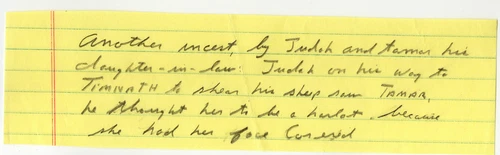 Another incest, by Judah and tamar his
daughter-in-law: Judah on his way to
TIMNATH to shear his sheep saw TAMAR,
he thought her to be a harlot, because
she had her face Covered